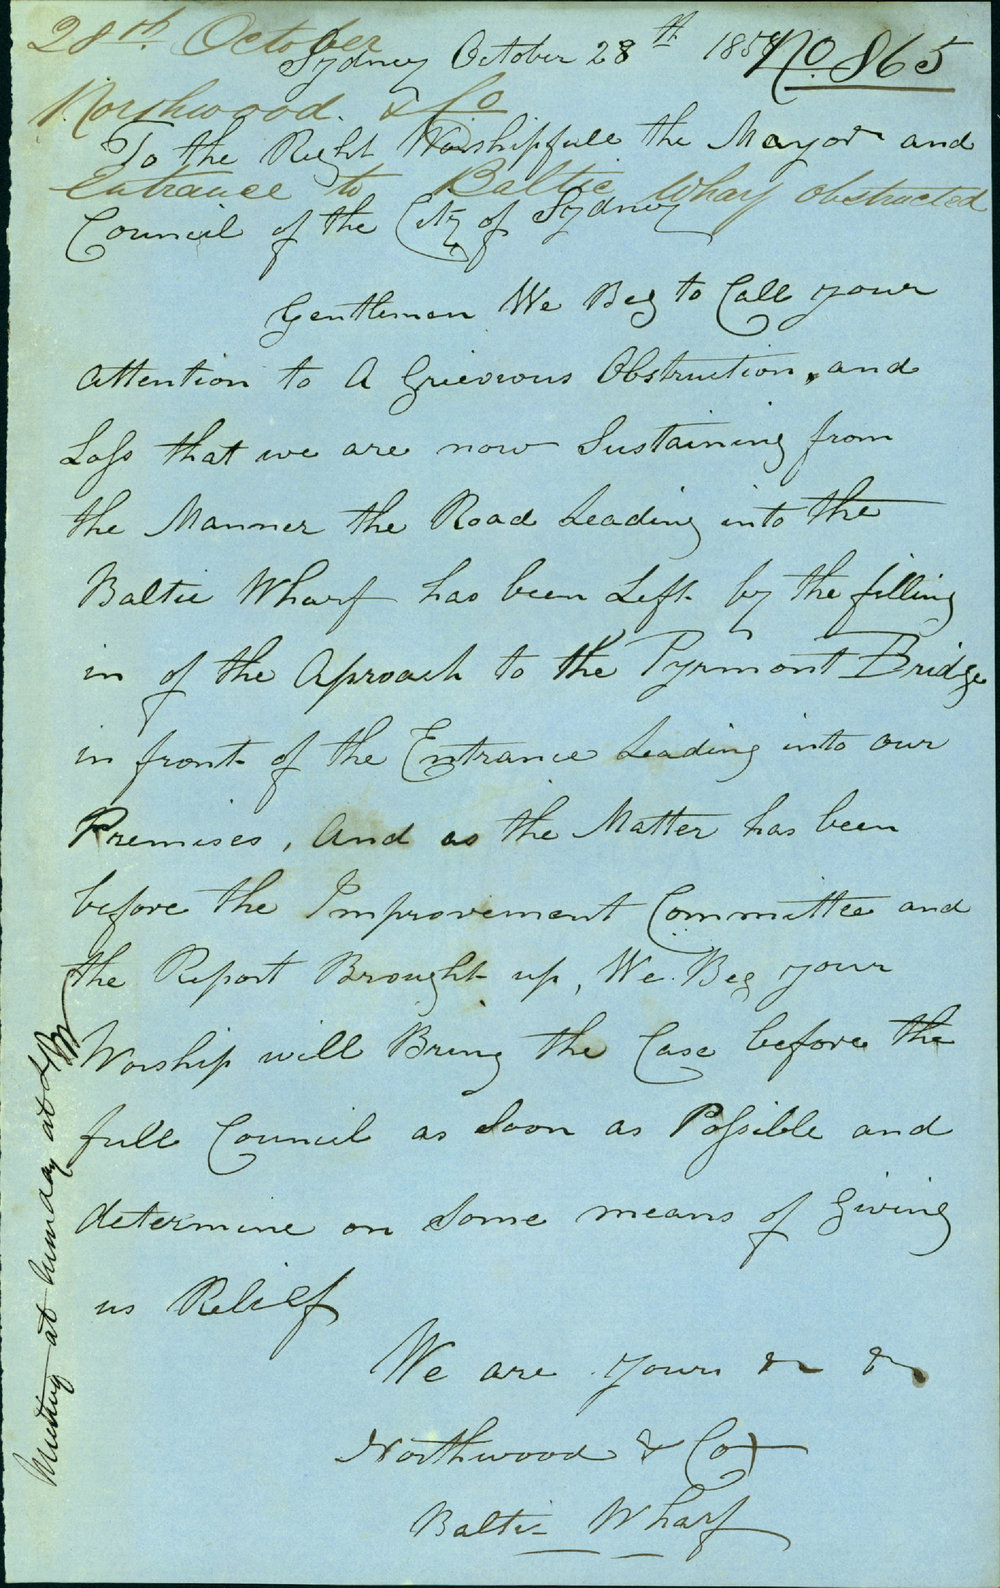 28th. October
Sydney October 28th 185
No. 865
Northwood. & Co
To the Right Worshipfull the Mayor and
Entrance to Baltic Wharf obstructed
Council of the City of Sydney
Gentlemen We Beg to Call your
Attention to A Grievious Obstruction, and
Loss that we are now Sustaining from
the Manner the Road Leading into the
Baltic Wharf has been Left by the filling
in of the Aproach to the Pyrmont Bridge
in front of the Entrance Leading into our
Premises, And as the Matter has been
before the Improvement Committee and
the Report Brought up, We Beg your
Worship will Bring the Case before the
full Council as Soon as Possible and
determine on Some means of Giving
us Relief
We are yours & &
Northwood & Co
Baltic Wharf
Meeting at